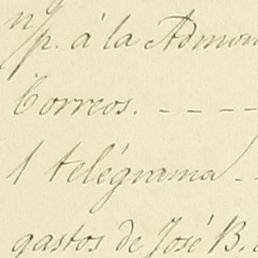 n/p. á la Admon
Correos. - - - -
1 telégrama - -
gastos de José B.